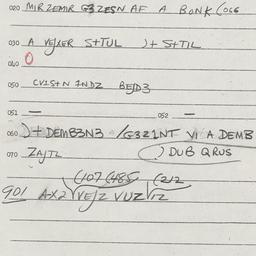 020 MIRZEMIR G3ZESN AF A BONK (066
030 A VEJXER S+TUL )+ S+TIL
040 0
050 CVIS+N INDZ BEJD3
051 — 052 —
060 )+ DEMB3N3 /G321NT VI A DEMB
070 ZAJTL ) DUB QRUS
(107 (485 (212
901 A-X2 VEJZ VUZ VIZ